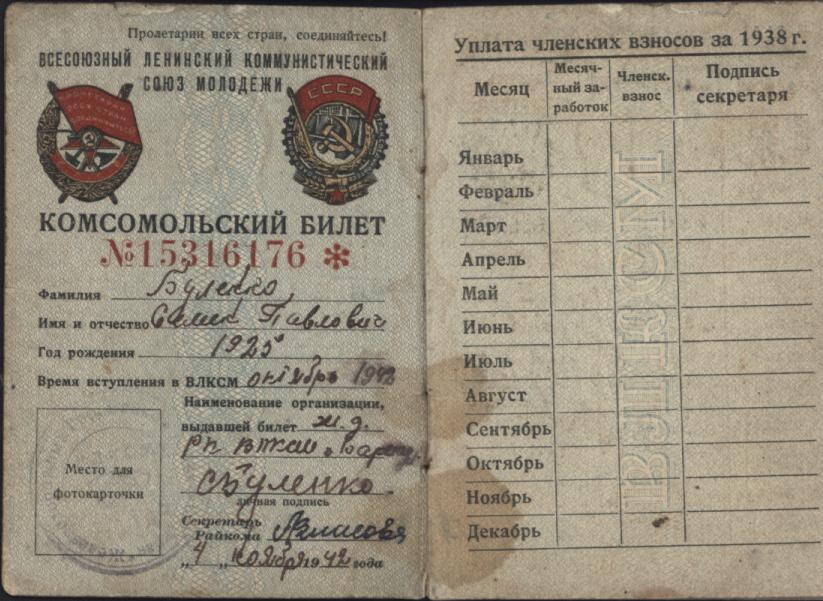 Пролетарии всех стран, соединяйтесь!
ВСЕСОЮЗНЫЙ ЛЕНИНСКИЙ КОММУНИСТИЧЕСКИЙ
СОЮЗ МОЛОДЕЖИ
ПРОЛЕТАРИИ
ВСЕХ СТРАН
СОЕДИНЯЙТЕСЬ
СССР
КОМСОМОЛЬСКИЙ БИЛЕТ
№15316176 *
Фамилия Буленко
Имя и отчество Павлович
Год рождения 1925
Время вступления в ВЛКСМ октябрь 1942
Наименование организации,
выдавшей билет ж.д.
РК ВЛКСМ
Буленко
личная подпись
Место для
фотокарточки
Секретарь
Райкома
„4" ноября 1942 года
Уплата членских взносов за 1938 г.
Месяц
Месяч-
ный за-
работок
Членск.
взнос
Подпись
секретаря
Январь
Февраль
Март
Апрель
Май
Июнь
Июль
Август
Сентябрь
Октябрь
Ноябрь
Декабрь
ВЛКСМ